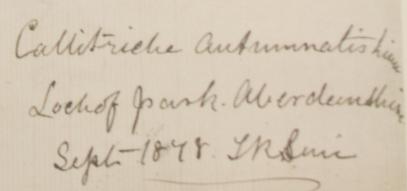 Callitriche autumnalis Linn
Loch of park. Aberdeenshire
Sept 1878. J R Sim